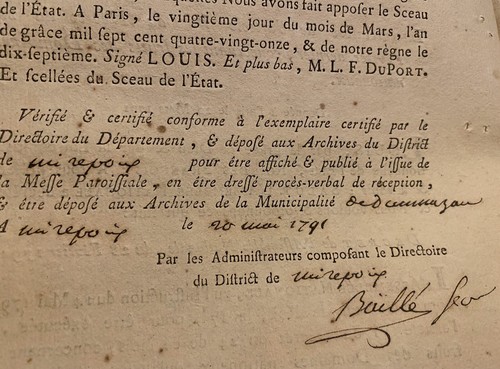 quelles Nous avons fait apposer le Sceau
de l'État. A Paris, le vingtième jour du mois de Mars, l'an
de grâce mil sept cent quatre-vingt-onze, & de notre règne le
dix-septième. Signé LOUIS. Et plus bas, M. L. F. DUPORT.
Et scellées du Sceau de l'État.
Vérifié & certifié conforme à l'exemplaire certifié par le
Directoire du Département, & déposé aux Archives du District
de mirepoix pour être affiché & publié à l'issue de
la Messe Paroissiale, en être dressé procès-verbal de réception,
& être déposé aux Archives de la Municipalité de Daumazan
A mirepoix le 20 mai 1791
Par les Administrateurs composant le Directoire
du District de mirepoix
Baillé Secr